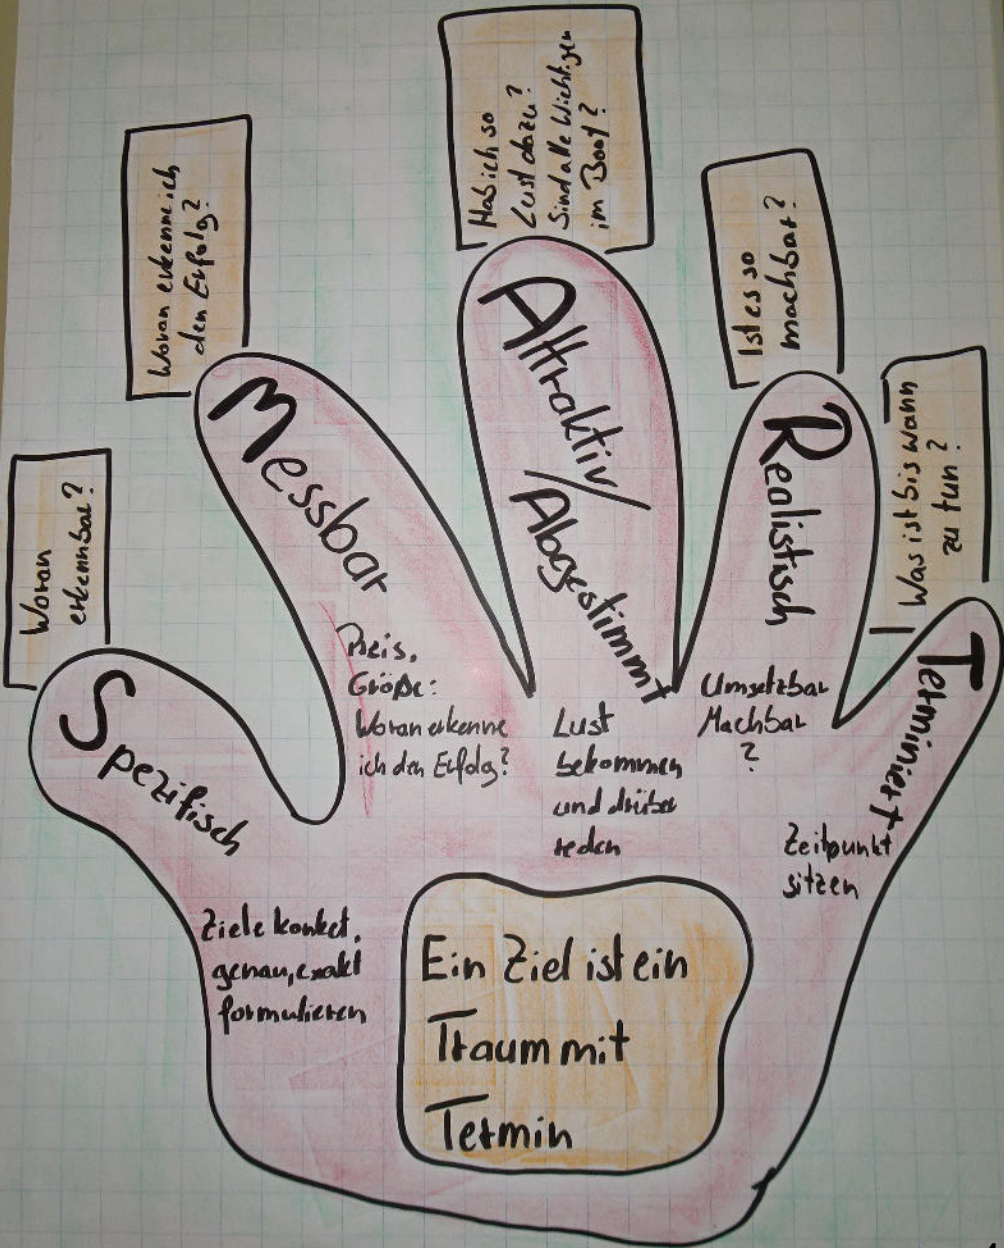 Woran
erkennbar?
Spezifisch
Ziele konkret,
genau, exakt
formulieren
Woran erkenne ich
den Erfolg?
Messbar
Preis,
Größe:
Woran erkenne
ich den Erfolg?
Hab ich so
Lust dazu?
Sind alle Wichtigen
im Boot?
Attraktiv/
Abgestimmt
Lust
bekommen
und drüber
reden
Ist es so
machbar?
Realistisch
Umsetzbar
Machbar
?
Was ist bis wann
zu tun?
Terminiert
Zeitpunkt
sitzen
Ein Ziel ist ein
Traum mit
Termin